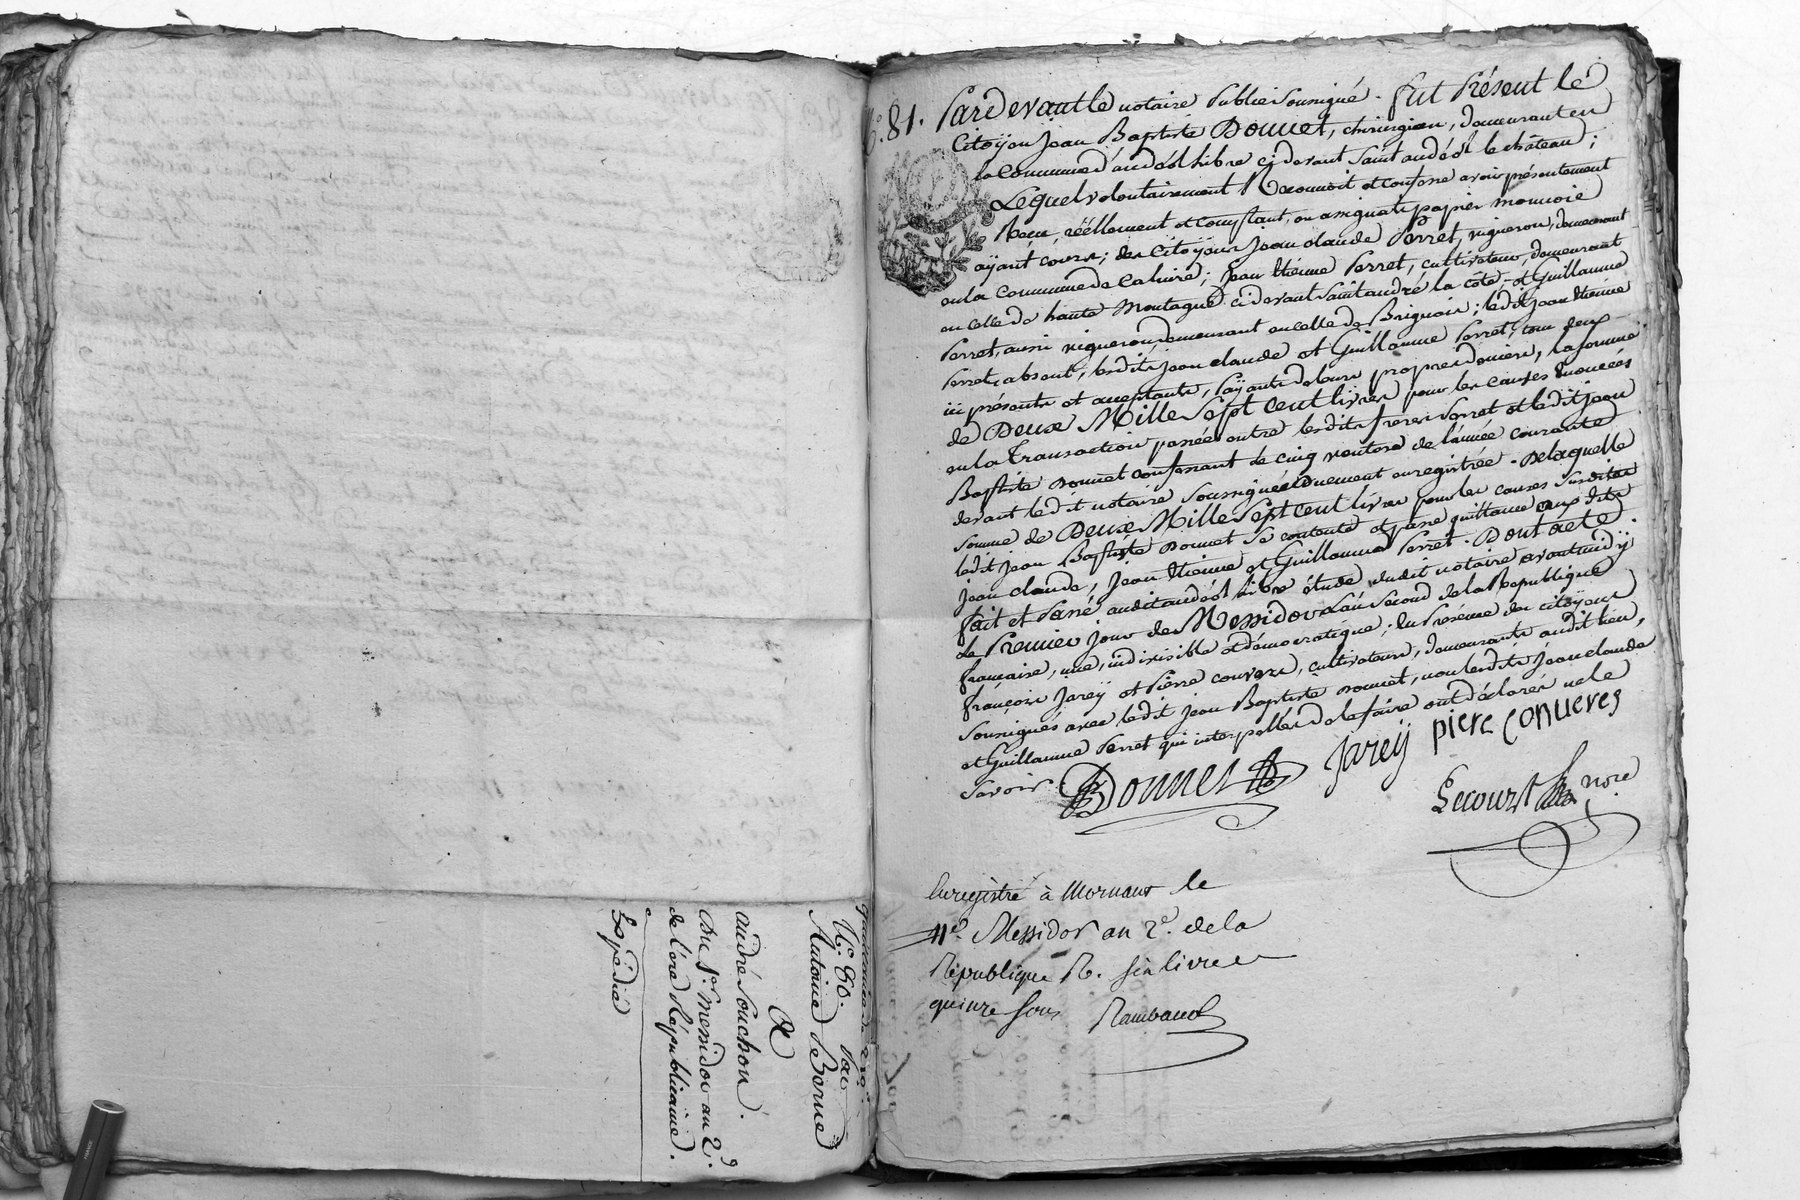 quittance de 270#.
N.° 80. Par
Antoine Berne
A
André Souchon.
Du 1.er messidor an 2.d
de l'ère Républicaine.
Expédié
N.° 81. Pardevant le notaire Public soussigné. fut Présent le
Citoÿen Jean Baptiste Donnet, chirurgien, demeurant en
la Commune d'andéol libre ci devant Saint andéol le château;
Lequel volontairement Reconnoit et confesse avoir présentement
Reçu, réellement et comptant, en assignats papier monnoie
aÿant cours; des Citoÿens Jean claude Perret, vigneron, demeurant
en la Commune de Caluire; Jean Etienne Perret, cultivateur, demeurant
en celle de haute Montagne ci devant Saint andré la côte, et Guillaume
Perret, aussi vigneron, demeurant en celle de Brignais; ledit Jean Etienne
Perret, absent, lesdits Jean claude et Guillaume Perret, tous deux
ici présents et acceptants, Paÿants de leurs propres deniers, la somme
de Deux Mille Sept cent livres pour les causes Enoncées
en la Transaction passée entre lesdits freres Perret et ledit Jean
Baptiste Donnet confessant le cinq ventose de l'année courante
devant ledit notaire soussigné duement enregistrée. De laquelle
somme de Deux Mille Sept cent livres pour les causes susdites
ledit Jean Baptiste Donnet se contente et passe quittance aux dits
Jean claude, Jean Etienne et Guillaume Perret. Dont acte
fait et Passé audit andéol libre étude dudit notaire avant midÿ
Le Premier jour de Messidor L'an Second de la République
française, une, indivisible et démocratique; En Présence des citoÿens
françois Jareÿ et Pierre couvers, cultivateurs, demeurants audit lieu,
soussignés avec ledit Jean Baptiste Donnet, non lesdits Jean claude
et Guillaume Perret qui interpellés de le faire ont déclarés ne le
savoir.
Donnet Jareÿ piere Conueres
Lecourt nore
Enregistré à Mornant le
11e. Messidor an 2e. de la
République R. six livres
quinze sous Rambaud